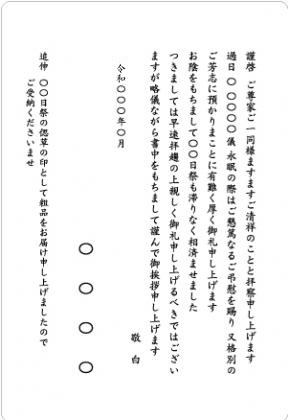 謹啓 ご尊家ご一同様ますますご清祥のことと拝察申し上げます
過日 〇〇〇〇〇 儀 永眠の際はご懇篤なるご弔慰を賜り 又格別の
ご芳志に預かりまことに有難く厚く御礼申し上げます
お陰をもちまして〇〇日祭も滞りなく相済ませました
つきましては早速拝趨の上親しく御礼申し上げるべきではござい
ますが略儀ながら書中をもちまして謹んで御挨拶申し上げます
敬白
令和〇〇〇年〇月
〇 〇 〇 〇
追伸 〇〇日祭の偲草の印として粗品をお届け申し上げましたので
ご受納くださいませ